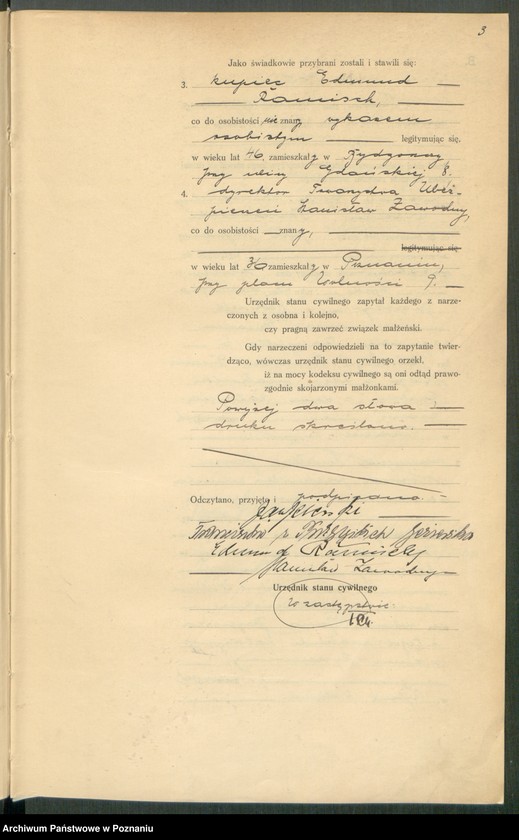 3
Jako świadkowie przybrani zostali i stawili się:
3. kupiec Edmund
Ramisch,
co do osobistości nie znany wykazem
osobistym legitymując się,
w wieku lat 46, zamieszkały w Bydgoszczy
przy ulicy Gdańskiej 8.
4. dyrektor Towarzystwa Ubez-
pieczeń Stanisław Zawodny,
co do osobistości znany,
legitymując się
w wieku lat 36 zamieszkały w Poznaniu,
przy placu Wolności 9.
Urzędnik stanu cywilnego zapytał każdego z narze-
czonych z osobna i kolejno,
czy pragną zawrzeć związek małżeński.
Gdy narzeczeni odpowiedzieli na to zapytanie twier-
dząco, wówczas urzędnik stanu cywilnego orzekł,
iż na mocy kodeksu cywilnego są oni odtąd prawo-
zgodnie skojarzonymi małżonkami.
Powyżej dwa słowa
druku skreślono.
Odczytano, przyjęto i podpisano.
z
Edmund Ramisch
Stanisław Zawodny
Urzędnik stanu cywilnego
W zastępstwie:
Archiwum Państwowe w Poznaniu